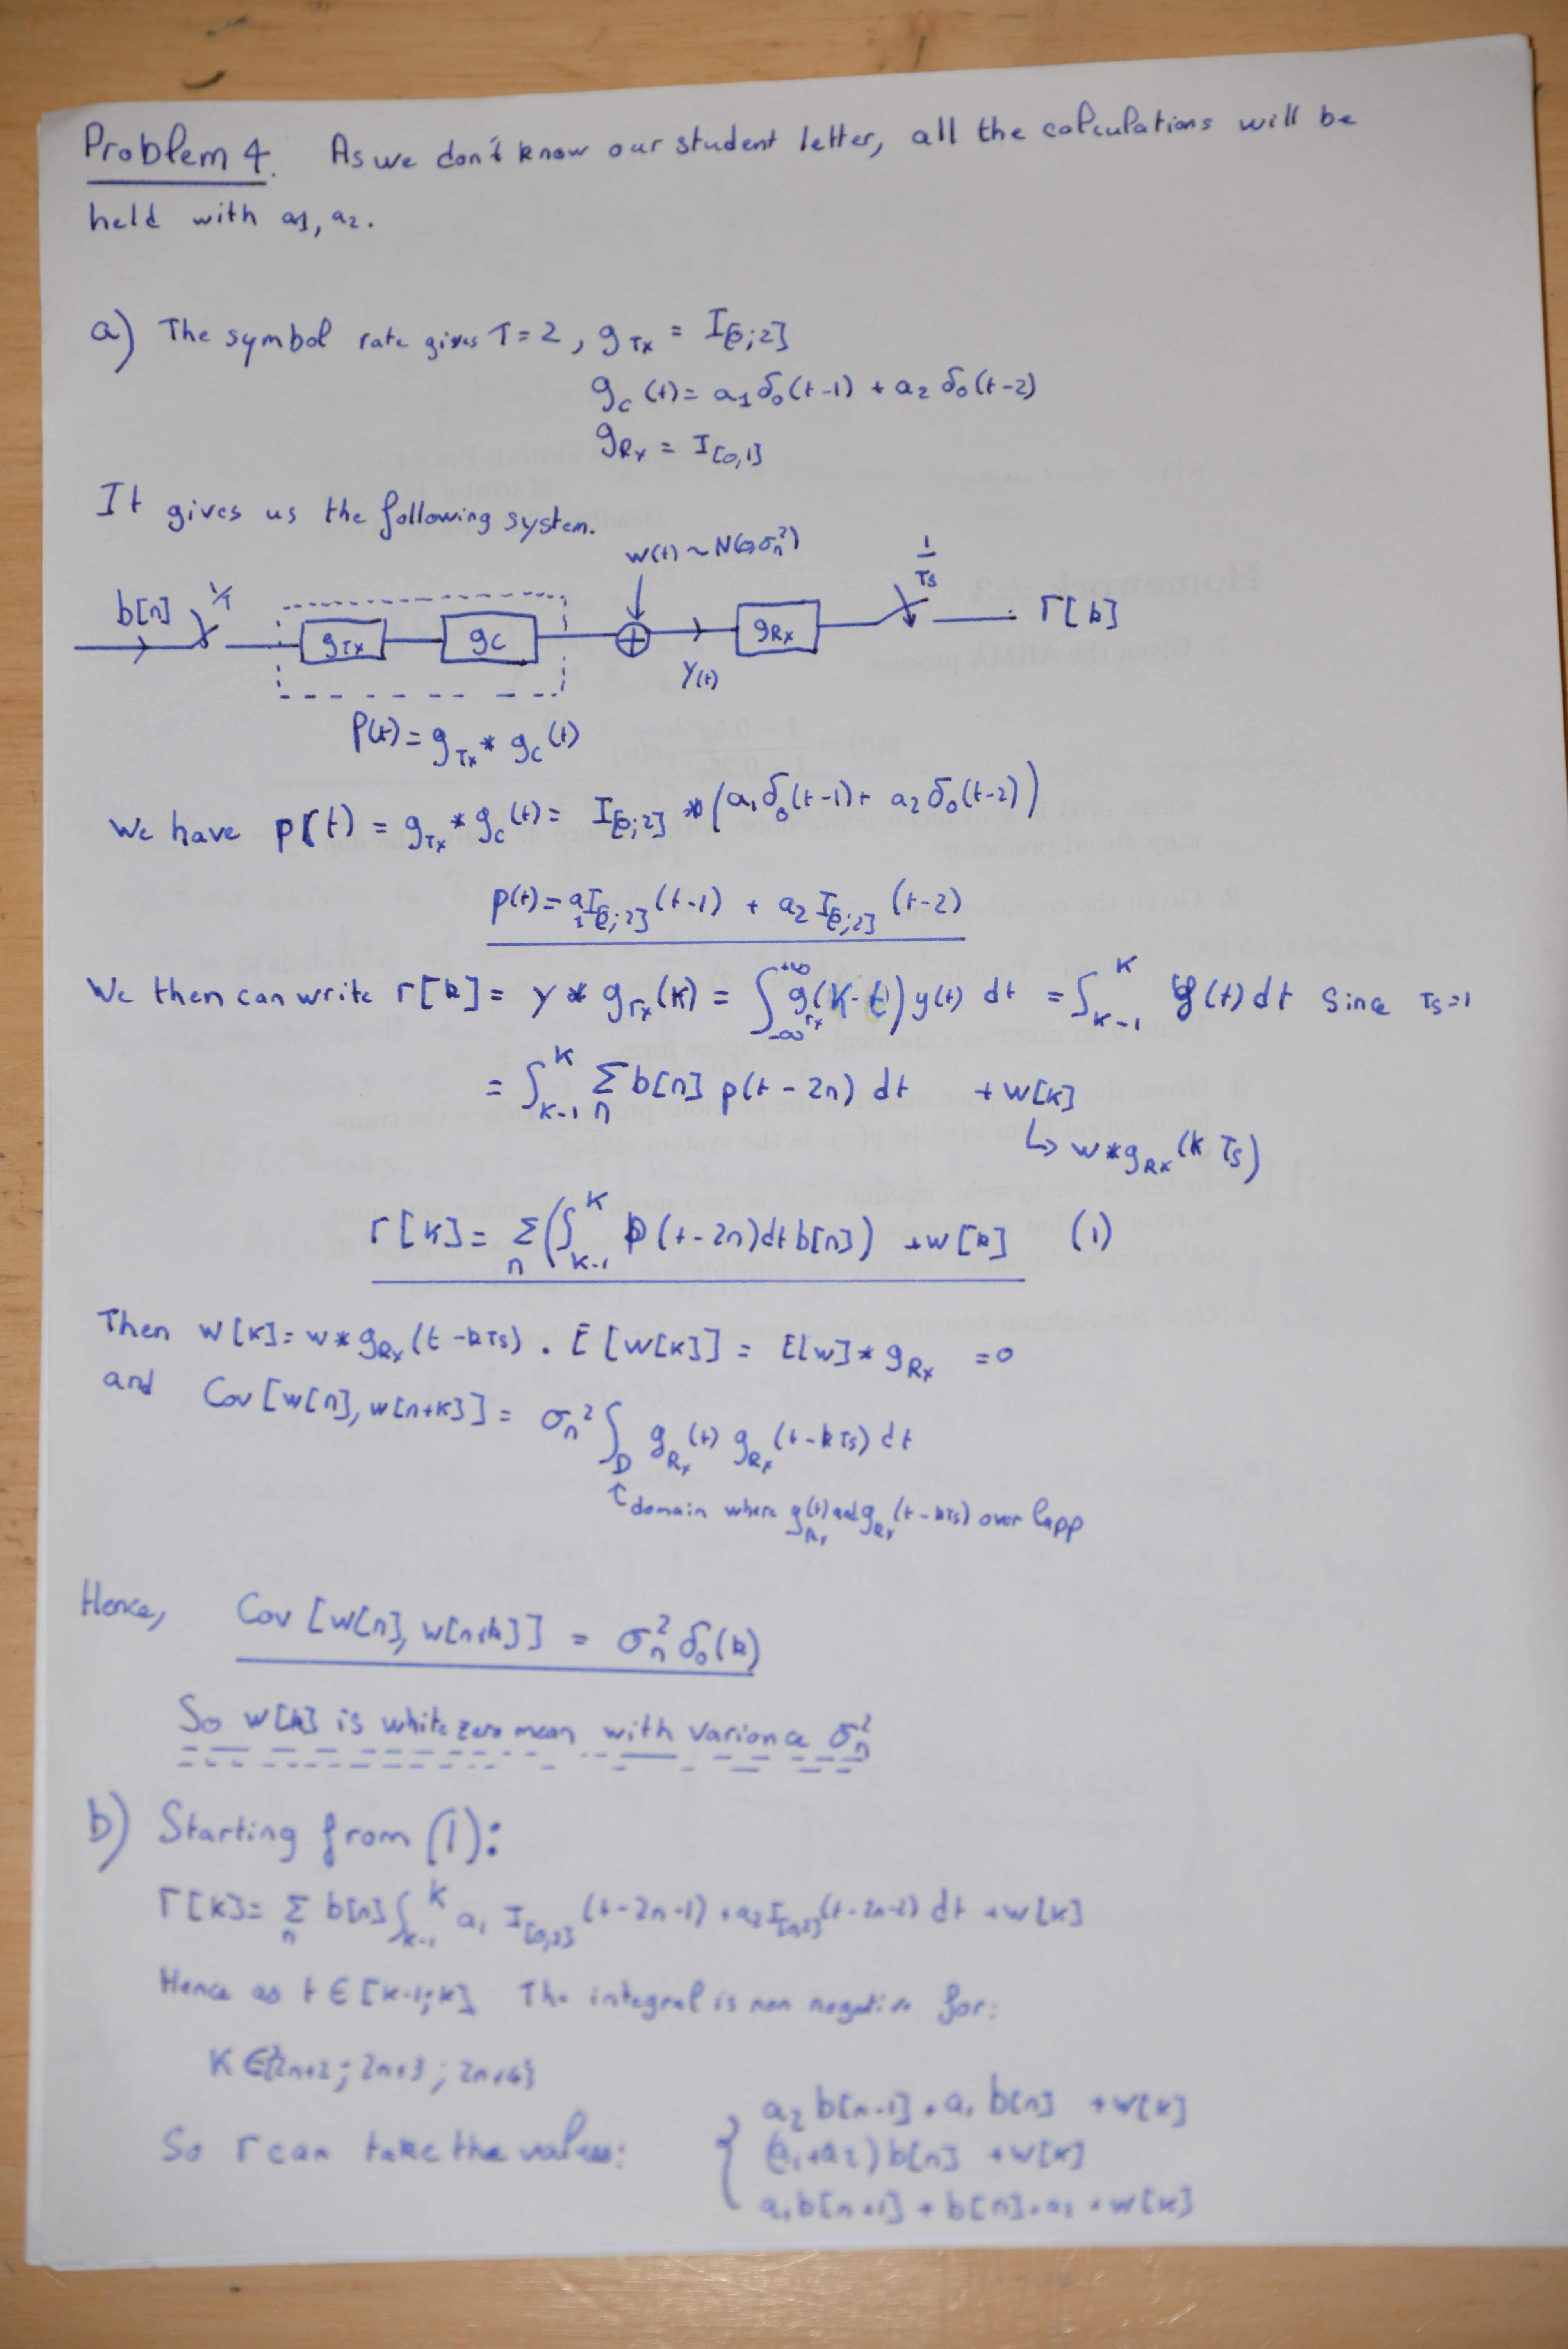 Problem 4. As we don't know our student letter, all the calculations will be
held with a1, a2.
a) The symbol rate gives T = 2, g_Tx = I_[0;2]
g_c(t) = a1 δ0(t-1) + a2 δ0(t-2)
g_Rx = I_[0,1]
It gives us the following system.
w(t) ~ N(0, σn²)
b[n] 1/T g_Tx g_C + y(t) g_Rx 1/Ts r[k]
P(t) = g_Tx * g_c(t)
We have p(t) = g_Tx * g_c(t) = I_[0;2] * (a1 δ0(t-1) + a2 δ0(t-2))
p(t) = a1 I_[0;2](t-1) + a2 I_[0;2](t-2)
We then can write r[k] = y * g_rx(k) = ∫_{-∞}^{+∞} g_rx(k-t) y(t) dt = ∫_{k-1}^{k} y(t) dt Since Ts=1
= ∫_{k-1}^{k} Σ_n b[n] p(t-2n) dt + w[k]
↳ w * g_Rx(k Ts)
r[k] = Σ_n (∫_{k-1}^{k} p(t-2n) dt b[n]) + w[k] (1)
Then w[k] = w * g_Rx(t-kTs). E[w[k]] = E[w] * g_Rx = 0
and Cov[w[n], w[n+k]] = σn² ∫_D g_Rx(t) g_Rx(t-kTs) dt
↑ domain where g_Rx(t) and g_Rx(t-kTs) over lapp
Hence, Cov[w[n], w[n+k]] = σn² δ0(k)
So w[k] is white zero mean with variance σn²
b) Starting from (1):
r[k] = Σ_n b[n] ∫_{k-1}^{k} a1 I_[0,2](t-2n-1) + a2 I_[0,2](t-2n-2) dt + w[k]
Hence as t ∈ [k-1;k] The integral is non negative for:
k ∈ {2n+2; 2n+3; 2n+4}
So r can take the values: { a2 b[n-1] + a1 b[n] + w[k]
(a1+a2) b[n] + w[k]
a1 b[n+1] + b[n].a2 + w[k]